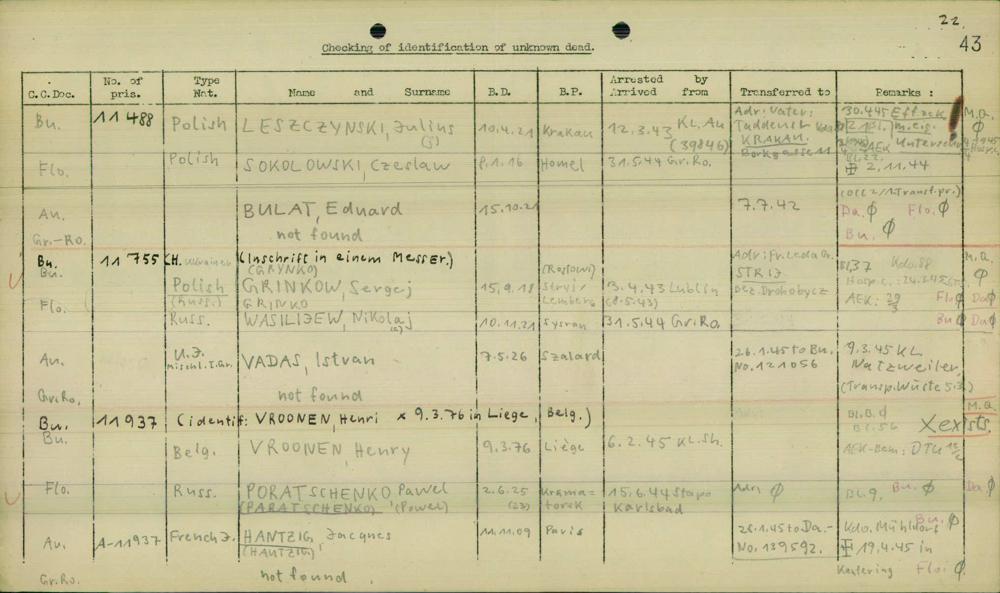 22
43
Checking of identification of unknown dead.
C.C.Doc. No. of pris. Type Nat. Name and Surname B.D. B.P. Arrested by Arrived from Transferred to Remarks :
Bu. 11488 Polish LESZCZYNSKI, Julius 10.4.21 Krakau 12.3.43 KL. Au Adr. Vater: 30.4.45 M.Q.
(J) (39846) Taddeusz
KRAKAU.
Borkgasse 11
Flo. Polish SOKOLOWSKI, Czeslaw 8.1.16 Homel 31.5.44 Gr.Ro. 2.11.44
Au. BULAT, Eduard 15.10.21 7.7.42 Da. Ø Flo. Ø
Gr.-Ro. not found Bu. Ø
Bu. 11755 (Inschrift in einem Messer.) Adr: Fr. M.Q.
Bu. (GRYNKO) (Rostow) STRIJ Bl.37 Kdo. 88
Polish GRINKOW, Sergej 15.9.18 Stryi/ 3.4.43 Lublin Bez. Drohobycz
Flo. (Russ.) GRINKO Lemberg (8.5.43) AEK: Flo Ø Da Ø
Russ. WASILIJEW, Nikolaj 10.11.21 Sysran 31.5.44 Gr.Ro. Bu Ø Da Ø
(a)
Au. U.J. VADAS, Istvan 7.5.26 Szalard 26.1.45 to Bu. 9.3.45 KL
Mischl. I. Gr. No. 121056 Natzweiler,
Gr.Ro. not found (Transp. Wüste 5.3.)
Bu. 11937 (identif: VROONEN, Henri x 9.3.76 in Liege, Belg.) M.Q.
Bu. Bl.56 X exists.
Belg. VROONEN, Henry 9.3.76 Liège 6.2.45 KL.Sh.
Flo. Russ. PORATSCHENKO Pawel 2.6.25 Krama= 15.6.44 Stapo Adr. Ø Bl.9, Bu. Ø Da Ø
(PARATSCHENKO) (Powel) (23) torsk Karlsbad
Bu. Ø
Au. A-11937 French J. HANTZIG, Jacques 11.11.09 Paris 28.1.45 to Da.- Kdo. Mühldorf
(HAUTZIG) No. 139592. 19.4.45 in
Gr.Ro. not found. Kaufering Flo: Ø